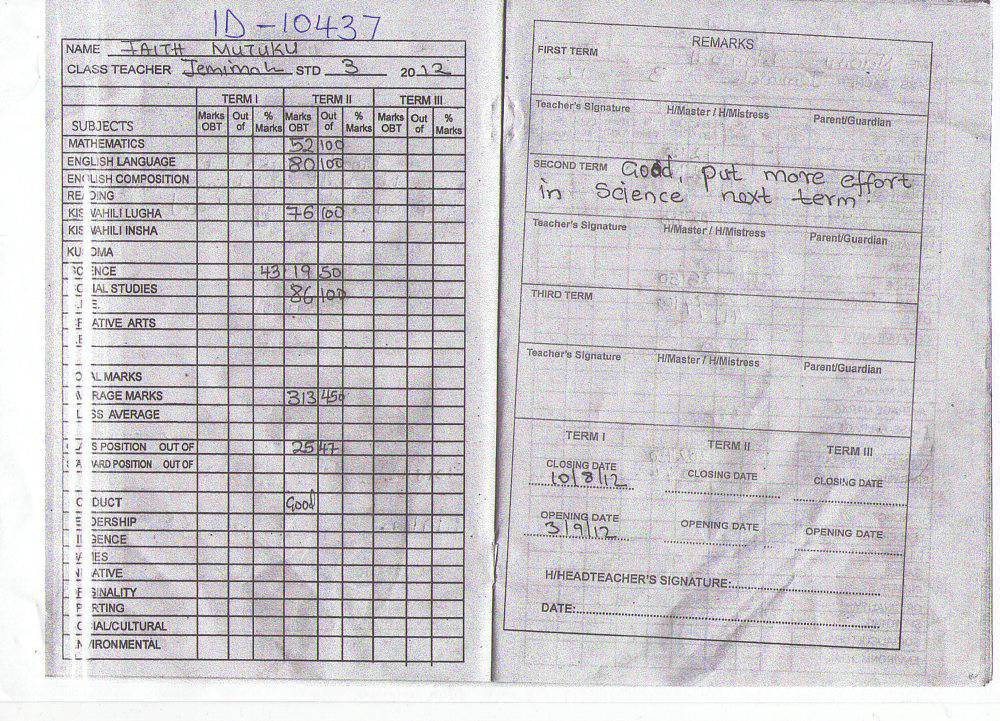 ID-10437
NAME FAITH MUTUKU
CLASS TEACHER Jemimah STD 3 2012
TERM I TERM II TERM III
SUBJECTS Marks OBT Out of % Marks Marks OBT Out of % Marks Marks OBT Out of % Marks
MATHEMATICS 52 100
ENGLISH LANGUAGE 80 100
ENGLISH COMPOSITION
READING
KISWAHILI LUGHA 76 100
KISWAHILI INSHA
KUSOMA
SCIENCE 43 19 50
SOCIAL STUDIES 86 100
CREATIVE ARTS
TOTAL MARKS
AVERAGE MARKS 313 450
CLASS AVERAGE
CLASS POSITION OUT OF 25 47
STANDARD POSITION OUT OF
CONDUCT Good
LEADERSHIP
DILIGENCE
GAMES
INITIATIVE
ORIGINALITY
SPORTING
SOCIAL/CULTURAL
ENVIRONMENTAL
REMARKS
FIRST TERM
Teacher's Signature H/Master / H/Mistress Parent/Guardian
SECOND TERM Good, put more effort
in Science next term.
Teacher's Signature H/Master / H/Mistress Parent/Guardian
THIRD TERM
Teacher's Signature H/Master / H/Mistress Parent/Guardian
TERM I TERM II TERM III
CLOSING DATE CLOSING DATE CLOSING DATE
10/8/12
OPENING DATE OPENING DATE OPENING DATE
3/9/12
H/HEADTEACHER'S SIGNATURE:
DATE: